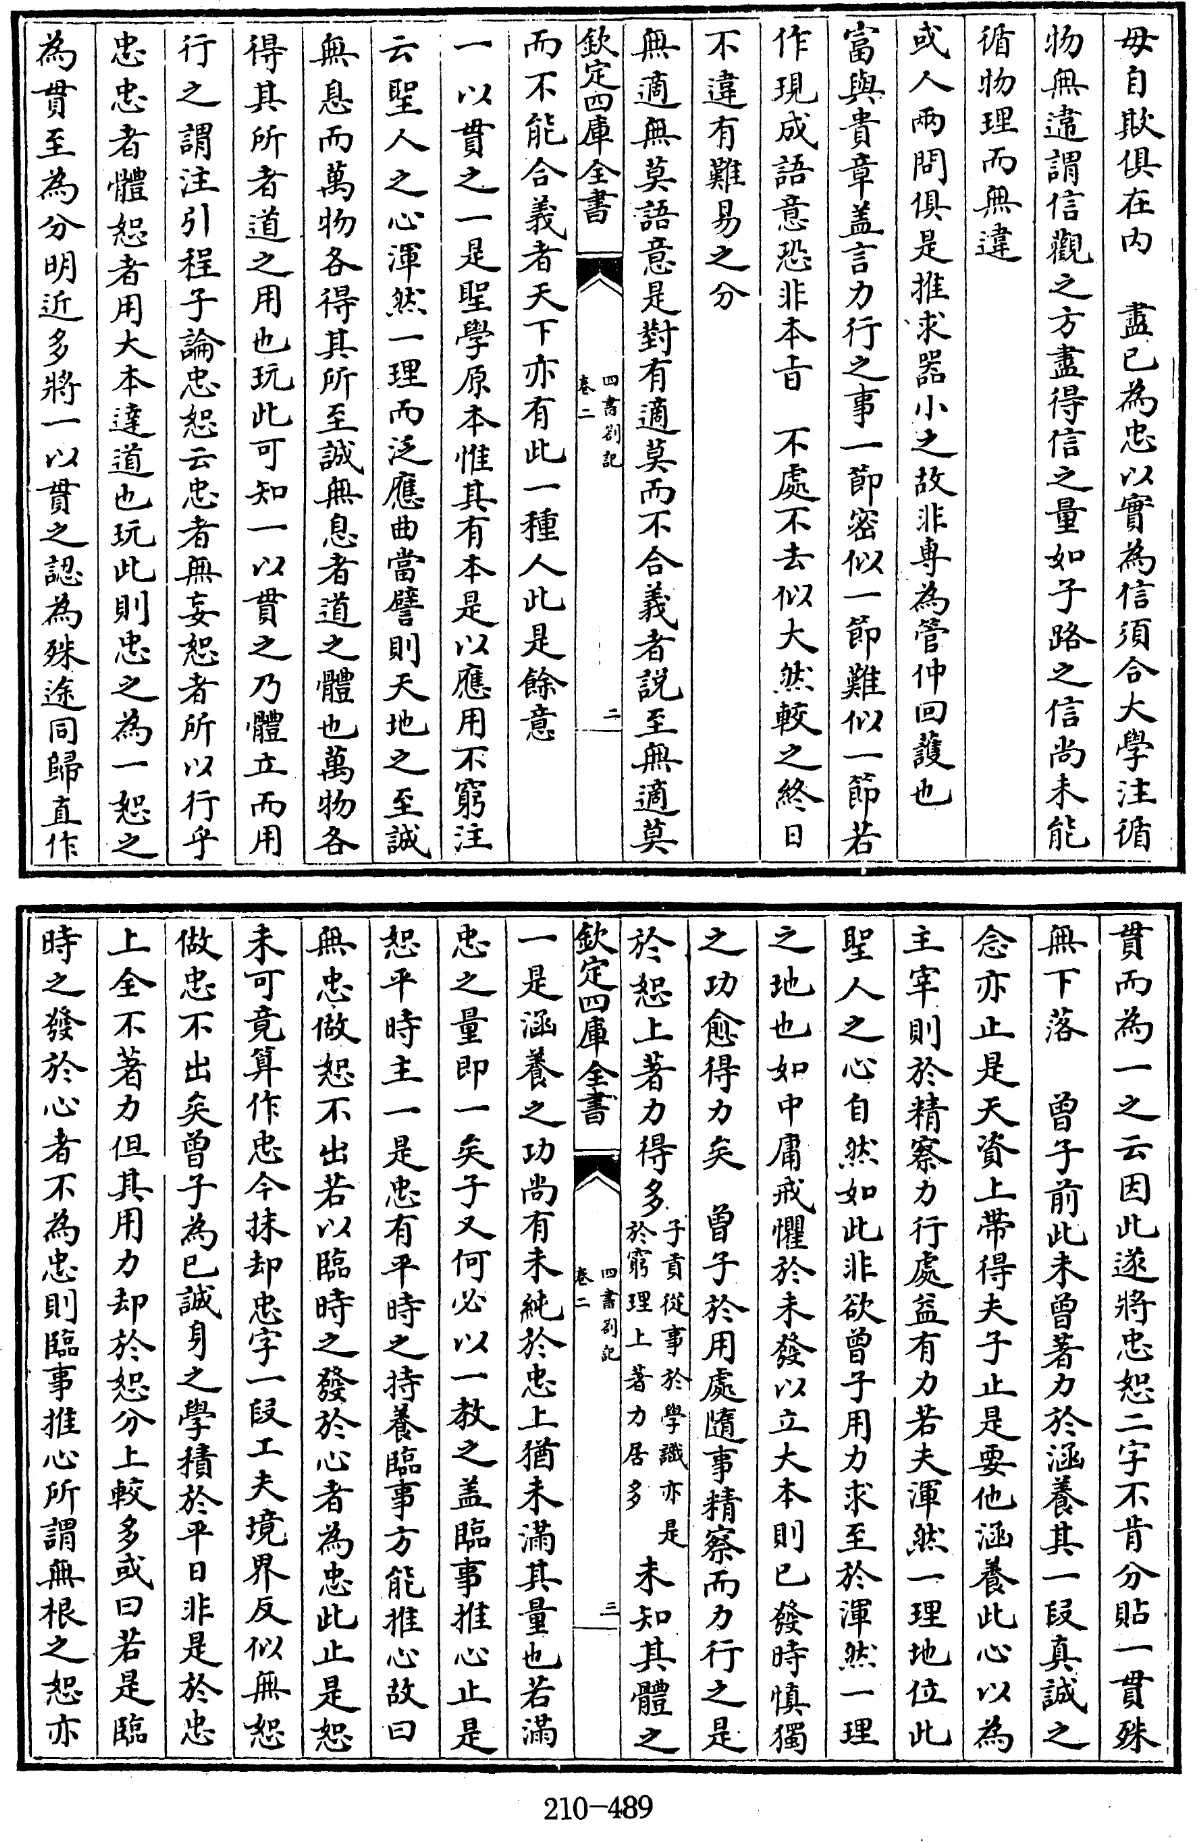 毋自欺俱在内　盡已為忠以實為信須合大學注循
物無違謂信觀之方盡得信之量如子路之信尚未能
循物理而無違
或人兩問俱是推求器小之故非専為管仲回護也
富與貴章盖言力行之事一節密似一節難似一節若
作現成語意恐非本㫖　不處不去似大然較之終日
不違有難易之分
無適無莫語意是對有適莫而不合義者説至無適莫
欽定四庫全書
四書劄記
卷二
二
而不能合義者天下亦有此一種人此是餘意
一以貫之一是聖學原本惟其有本是以應用不窮注
云聖人之心渾然一理而泛應曲當譬則天地之至誠
無息而萬物各得其所至誠無息者道之體也萬物各
得其所者道之用也玩此可知一以貫之乃體立而用
行之謂注引程子論忠恕云忠者無妄恕者所以行乎
忠忠者體恕者用大本達道也玩此則忠之為一恕之
為貫至為分明近多將一以貫之認為殊途同歸直作
貫而為一之云因此遂將忠恕二字不肯分貼一貫殊
無下落　曾子前此未曾著力於涵養其一段真誠之
念亦止是天資上帶得夫子止是要他涵養此心以為
主宰則於精察力行處益有力若夫渾然一理地位此
聖人之心自然如此非欲曾子用力求至於渾然一理
之地也如中庸戒懼於未發以立大本則已發時慎獨
之功愈得力矣　曾子於用處隨事精察而力行之是
於恕上著力得多子貢從事於學識亦是於窮理上著力居多未知其體之
欽定四庫全書
四書劄記
卷二
三
一是涵養之功尚有未純於忠上猶未滿其量也若滿
忠之量即一矣子又何必以一教之盖臨事推心止是
恕平時主一是忠有平時之持養臨事方能推心故曰
無忠做恕不出若以臨時之發於心者為忠此止是恕
未可竟算作忠今抹却忠字一段工夫境界反似無恕
做忠不出矣曾子為已誠身之學積於平日非是於忠
上全不著力但其用力却於恕分上較多或曰若是臨
時之發於心者不為忠則臨事推心所謂無根之恕亦
210-489